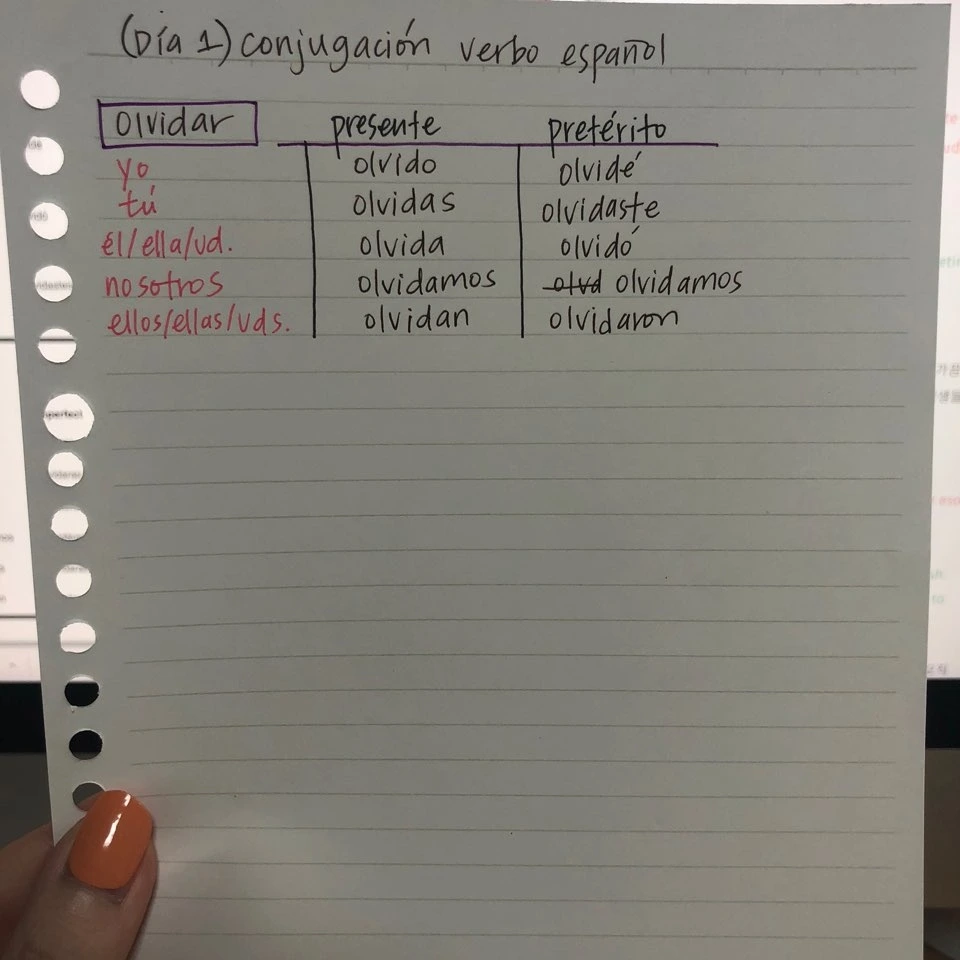 (Día 1) conjugación verbo español
olvidar presente pretérito
yo olvido olvidé
tú olvidas olvidaste
él/ella/ud. olvida olvidó
nosotros olvidamos olvd olvidamos
ellos/ellas/uds. olvidan olvidaron